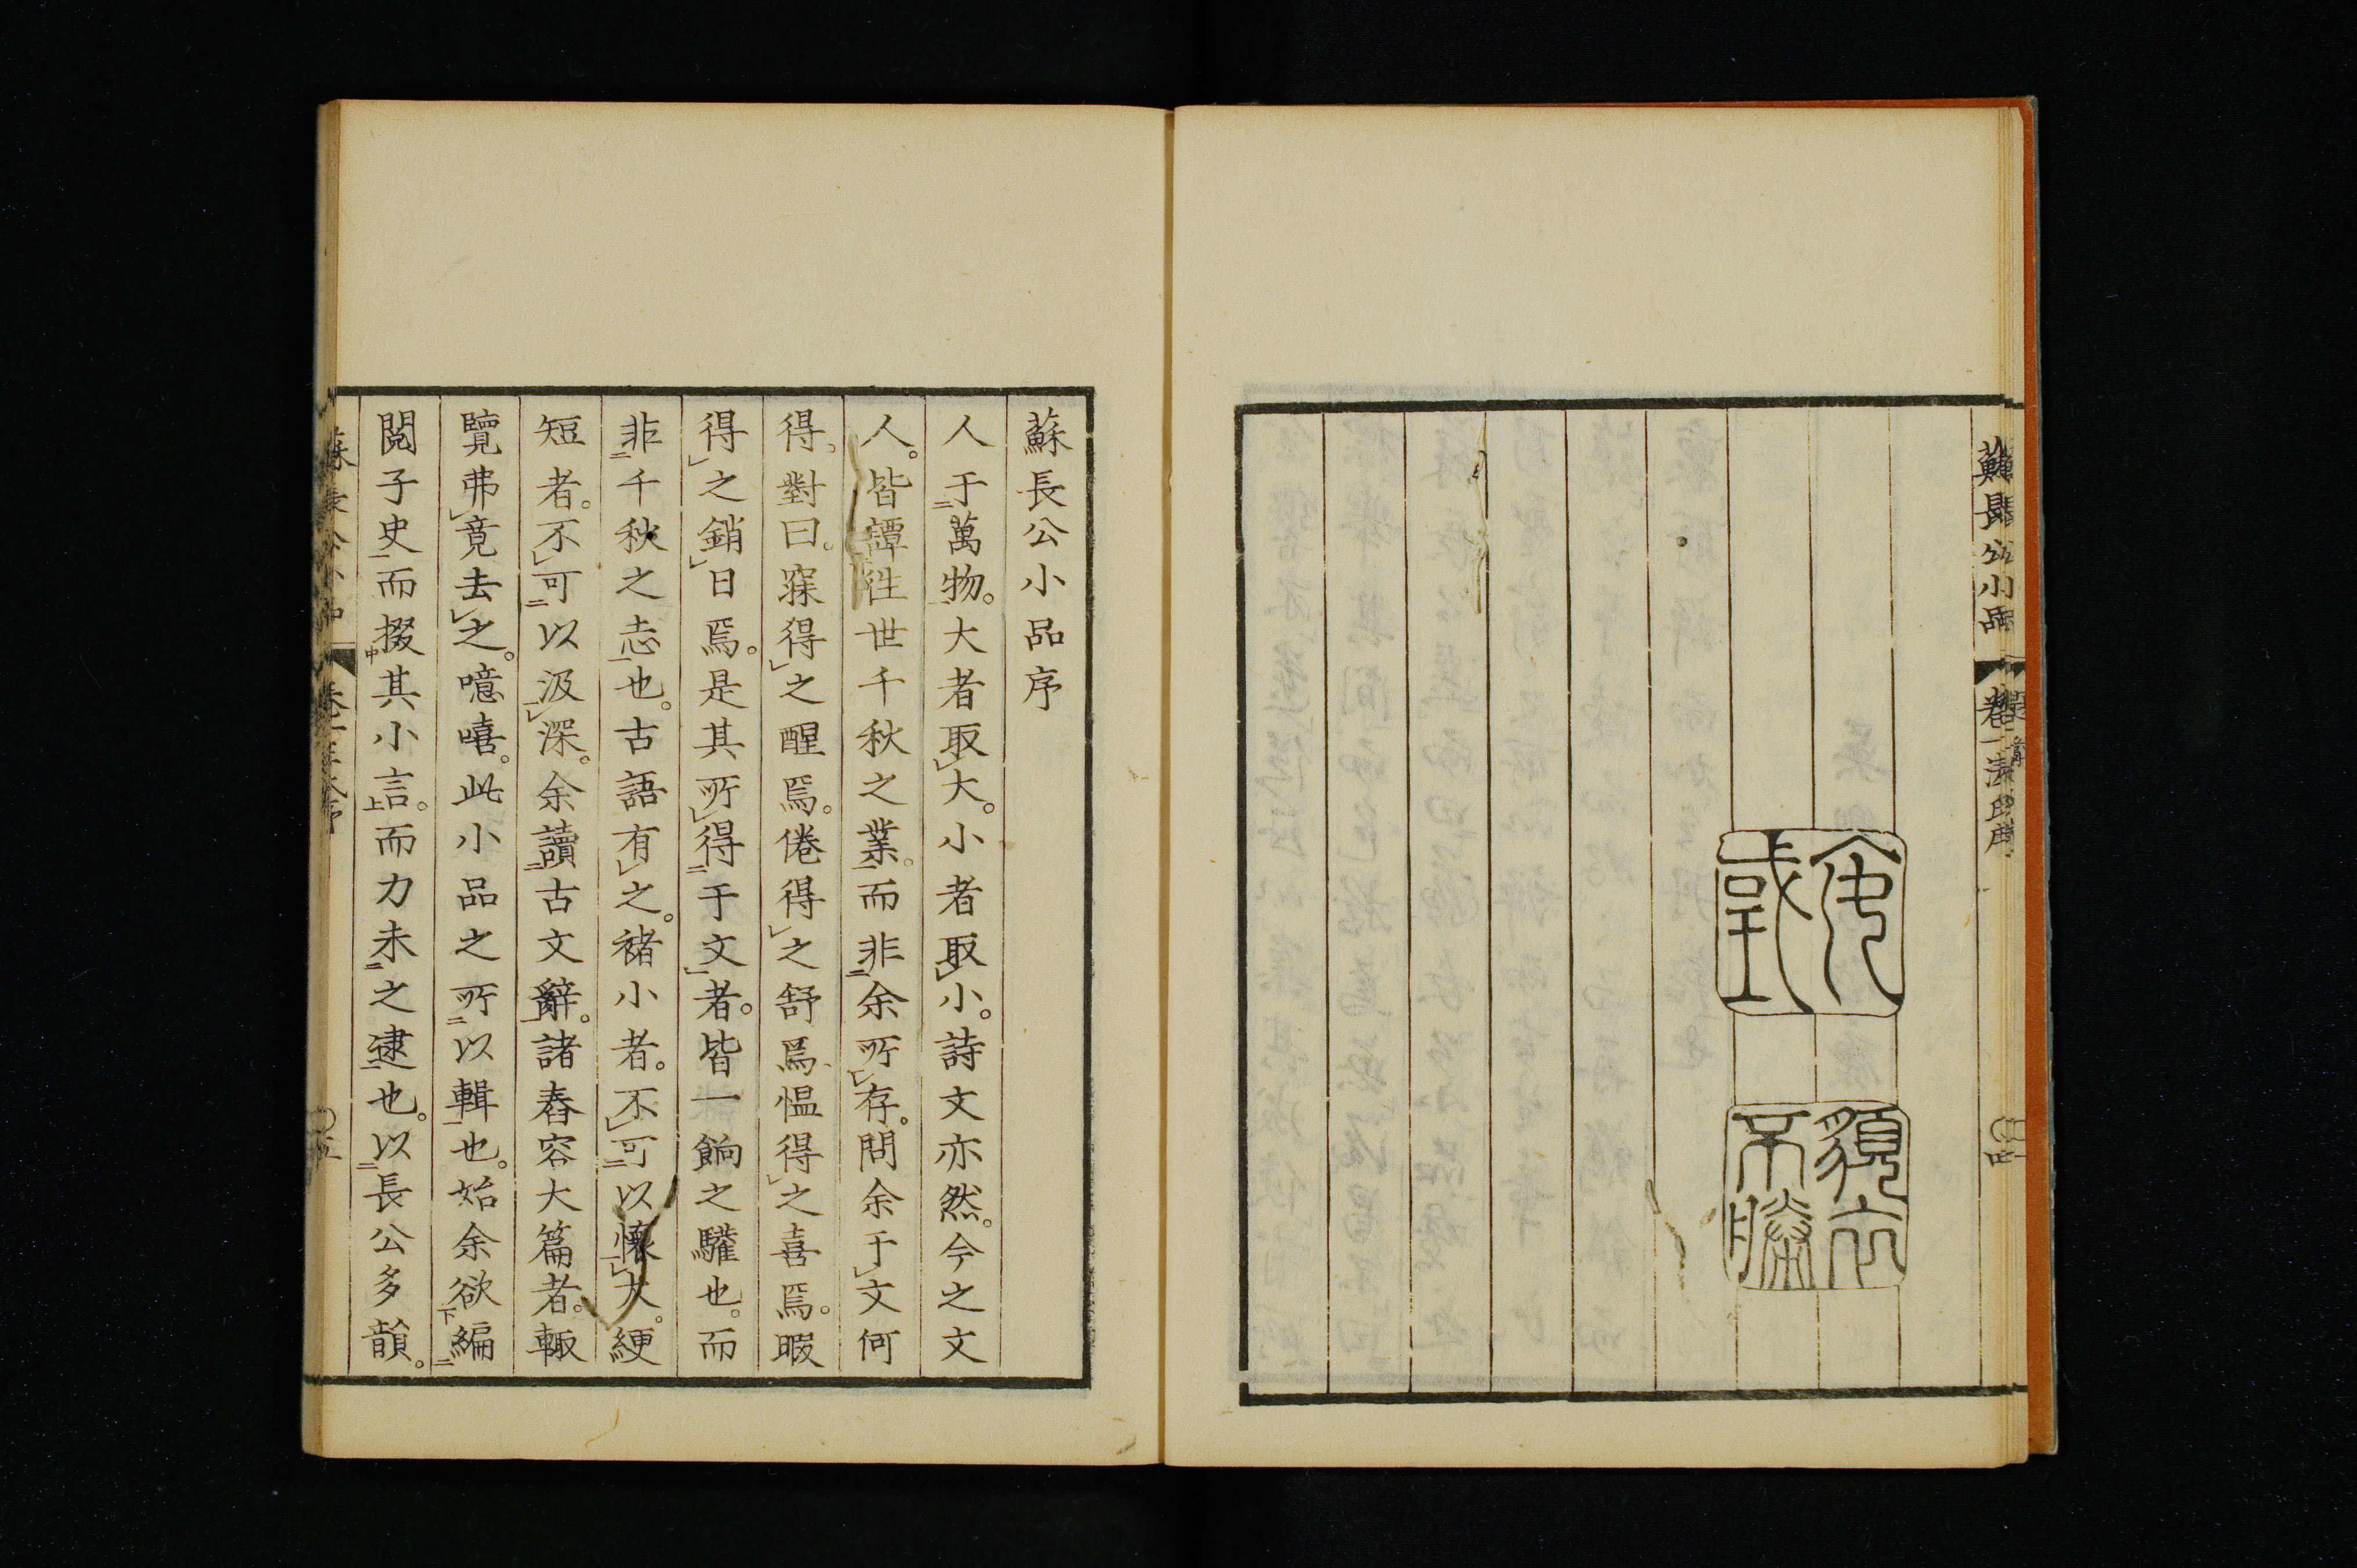 蘇長公小品
蘇長公小品序
人于萬物。大者取大。小者取小。詩文亦然。今之文
人。皆譚徃世千秋之業。而非余所存。問余于文何
得。對曰。寐得之醒焉。倦得之舒焉。慍得之喜焉。暇
得之銷日焉。是其所得于文者。皆一餉之驩也。而
非千秋之志也。古語有之。褚小者。不可以懷大。綆
短者。不可以汲深。余讀古文辭。諸舂容大篇者。輙
覽弗竟去之。噫嘻。此小品之所以輯也。始余欲編
閱子史而掇其小言。而力未之逮也。以長公多韻。